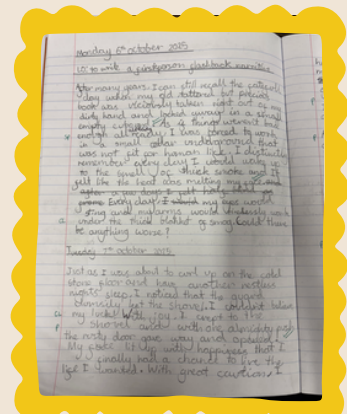 Monday 6th October 2025
LO: to write a first person flashback narrative
After many years, I can still recall the
day when my old tattered but precious
book was viciously taken right out of my
dirty hand and locked away in a small
empty cupboard. As if things weren't bad
enough already, I was forced to work
in a small cellar underground that
was not fit for human life. I distinctly
remember every day I would wake up
to the smell of thick smoke and it
felt like the heat was melting my face
Every day, my eyes would
sting and my arms would work
under the thick blanket of smog. Could there
be anything worse?
Tuesday 7th October 2025
Just as I was about to curl up on the cold
stone floor and have another restless
nights sleep, I noticed that the
the shovel. I couldn't believe
my luck! With joy, I crept to the
shovel and with one almighty push
the rusty door gave way and opened.
My face lit up with happiness that I
finally had a chance to live the
life I wanted. With great caution, I